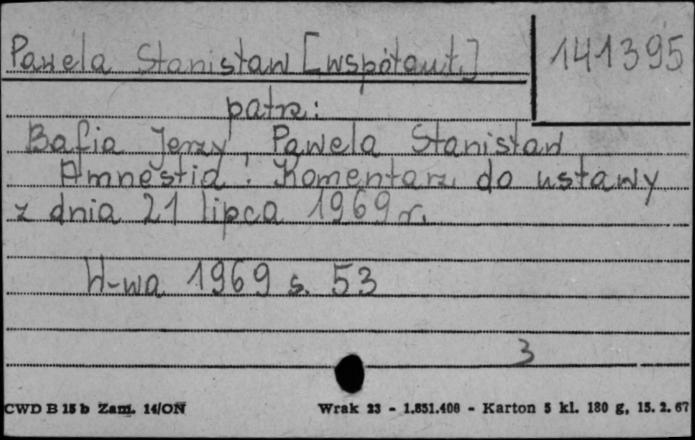 Pawela Stanisław [współaut.]
141395
patrz:
Bafia Jerzy, Pawela Stanisław
Amnestia : Komentarz do ustawy
z dnia 21 lipca 1969 r.
W-wa 1969 s. 53
3
CWD B 15 b Zam. 14/ON
Wrak 23 - 1.851.400 - Karton 5 kl. 180 g, 15. 2. 67